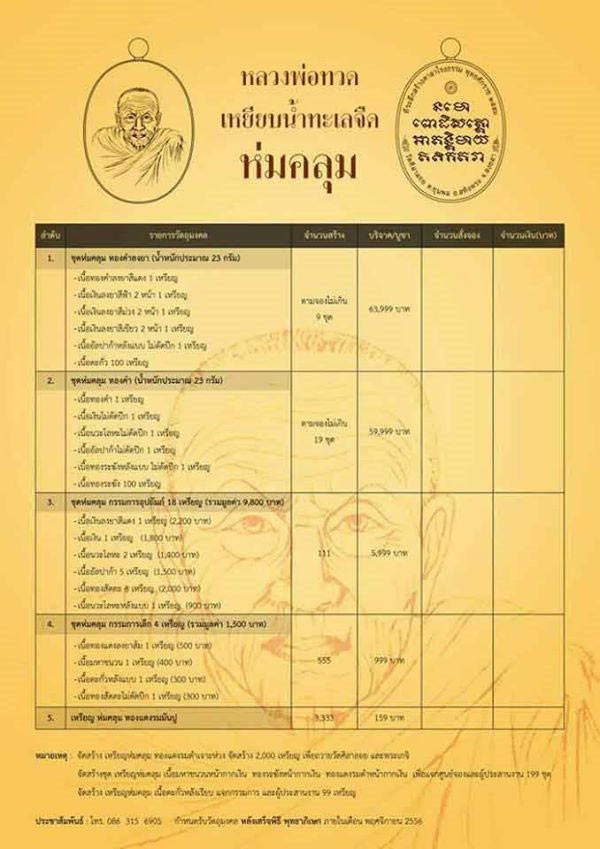 หลวงพ่อทวด
เหยียบน้ำทะเลจืด
ห่มคลุม
ลำดับ รายการวัตถุมงคล จำนวนสร้าง บริจาค/บูชา จำนวนสั่งจอง จำนวนเงิน(บาท)
1. ชุดห่มคลุม ทองคำลงยา (น้ำหนักประมาณ 23 กรัม)
-เนื้อทองคำลงยาสีแดง 1 เหรียญ
-เนื้อเงินลงยาสีฟ้า 2 หน้า 1 เหรียญ
-เนื้อเงินลงยาสีม่วง 2 หน้า 1 เหรียญ
-เนื้อเงินลงยาสีเขียว 2 หน้า 1 เหรียญ
-เนื้ออัลปาก้าหลังแบบ ไม่ตัดปีก 1 เหรียญ
-เนื้อตะกั่ว 100 เหรียญ
ตามจองไม่เกิน
9 ชุด
63,999 บาท
2. ชุดห่มคลุม ทองคำ (น้ำหนักประมาณ 23 กรัม)
-เนื้อทองคำ 1 เหรียญ
-เนื้อเงินไม่ตัดปีก 1 เหรียญ
-เนื้อนวะโลหะไม่ตัดปีก 1 เหรียญ
-เนื้ออัลปาก้าไม่ตัดปีก 1 เหรียญ
-เนื้อทองระฆังหลังแบบ ไม่ตัดปีก 1 เหรียญ
-เนื้อทองระฆัง 100 เหรียญ
ตามจองไม่เกิน
19 ชุด
59,999 บาท
3. ชุดห่มคลุม กรรมการอุปถัมภ์ 18 เหรียญ (รวมมูลค่า 9,800 บาท)
-เนื้อเงินลงยาสีแดง 1 เหรียญ (2,200 บาท)
-เนื้อเงิน 1 เหรียญ (1,800 บาท)
-เนื้อนวะโลหะ 2 เหรียญ (1,400 บาท)
-เนื้ออัลปาก้า 5 เหรียญ (1,500 บาท)
-เนื้อทองสัตตะ 8 เหรียญ (2,000 บาท)
-เนื้อนวะโลหะหลังแบบ 1 เหรียญ (900 บาท)
111
5,999 บาท
4. ชุดห่มคลุม กรรมการเล็ก 4 เหรียญ (รวมมูลค่า 1,500 บาท)
-เนื้อทองแดงลงยาส้ม 1 เหรียญ (500 บาท)
-เนื้อมหาชนวน 1 เหรียญ (400 บาท)
-เนื้อตะกั่วหลังแบบ 1 เหรียญ (300 บาท)
-เนื้อทองสัตตะไม่ตัดปีก 1 เหรียญ (300 บาท)
555
999 บาท
5. เหรียญ ห่มคลุม ทองแดงรมมันปู 3,333 159 บาท
หมายเหตุ : จัดสร้าง เหรียญห่มคลุม ทองแดงรมดำเจาะห่วง จัดสร้าง 2,000 เหรียญ เพื่อถวายวัดศิลาลอย และพระเกจิ
จัดสร้างชุด เหรียญห่มคลุม เนื้อมหาชนวนหน้ากากเงิน ทองระฆังหน้ากากเงิน ทองแดงรมดำหน้ากากเงิน เพื่อแจกศูนย์จองและผู้ประสานงาน 199 ชุด
จัดสร้าง เหรียญห่มคลุม เนื้อตะกั่วหลังเรียบ แจกกรรมการ และผู้ประสานงาน 99 เหรียญ
ประชาสัมพันธ์ : โทร. 086 315 6905 กำหนดรับวัตถุมงคล หลังเสร็จพิธี พุทธาภิเษก ภายในเดือน พฤศจิกายน 2556